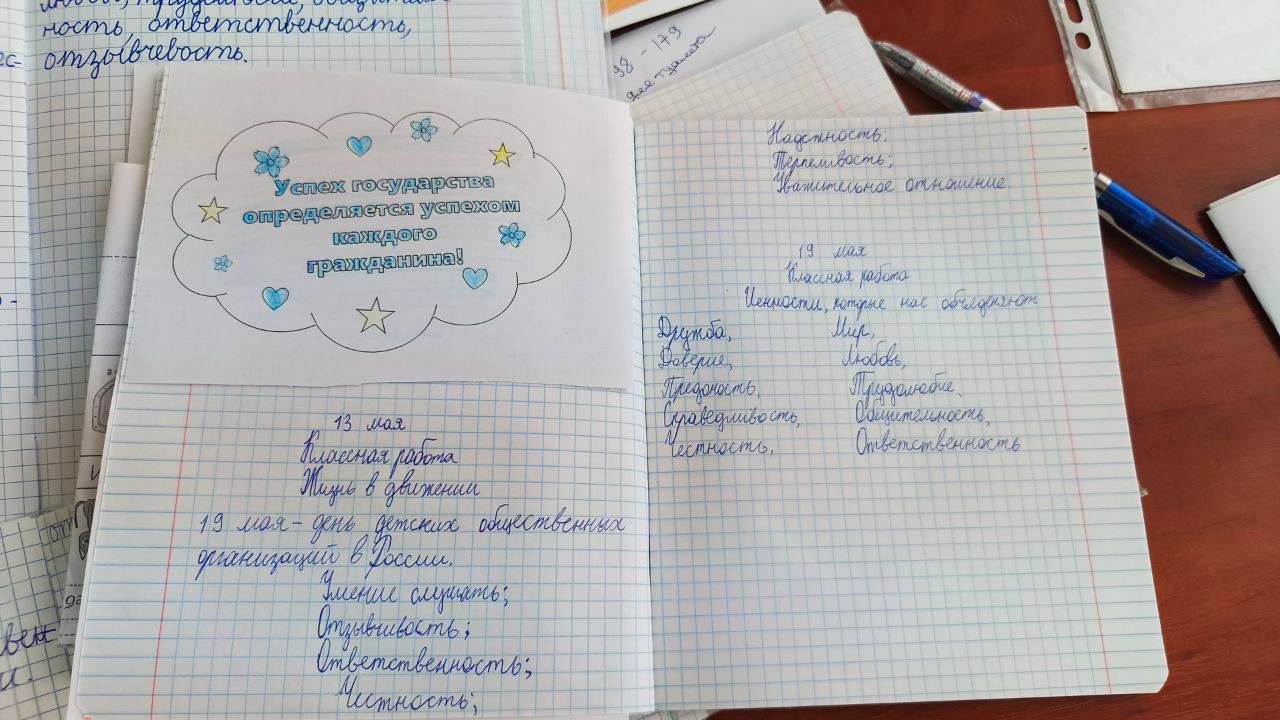 ность, ответственность,
отзывчевость.
98 - 179
Успех государства
определяется успехом
каждого
гражданина!
13 мая
Классная работа
Жизнь в движении
19 мая - день детских общественных
организаций в России.
Умение слушать;
Отзывчивость;
Ответственность;
Честность;
Надёжность;
Терпеливость;
Уважительное отношение.
19 мая
Классная работа
Ценности, которые нас объединяют
Дружба, Мир,
Доверие, Любовь,
Преданость, Трудолюбие,
Справедливость, Общительность,
Честность, Ответственность